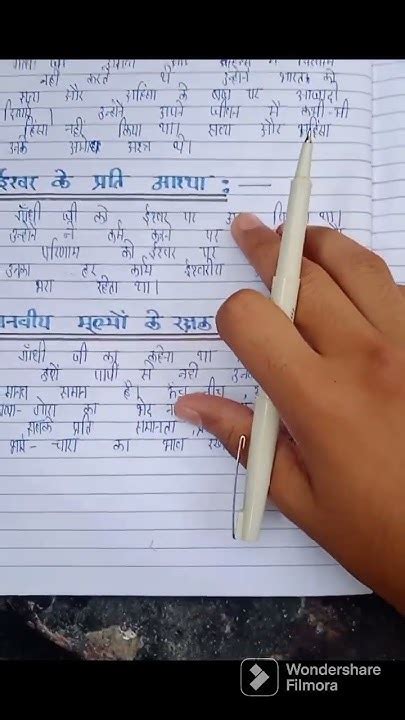 नही करते थे उन्होंने भारत को
सत्य और अहिंसा के बल पर आजादी
दिलाई। उन्होंने अपने जीवन में कभी-भी
हिंसा नहीं किया था। सत्य और अहिंसा
उनके अमोघ अस्त्र थे।
ईश्वर के प्रति आस्था : —
गाँधी जी को ईश्वर पर
उन्होंने ने कर्म करने पर
परिणाम को ईश्वर पर
उनका हर कार्य ईश्वरीय
भरा रहता था।
मानवीय मूल्यों के रक्षक
गाँधी जी का कहना था
पापी से नही
मानव समान है। ऊँच नीच,
गोरा का भेद
सबके प्रति समानता,
भाई-चारा का भाव
Wondershare
Filmora